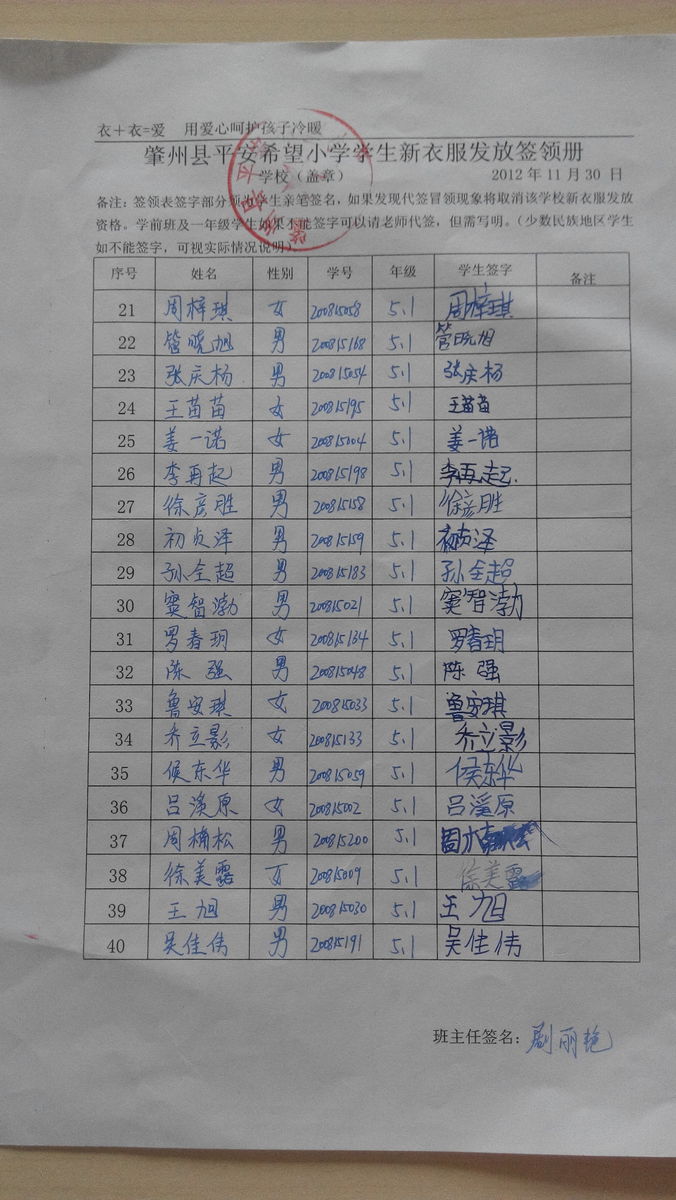 衣＋衣=爱 用爱心呵护孩子冷暖
肇州县平安希望小学学生新衣服发放签领册
学校（盖章） 2012 年 11 月 30 日
备注：签领表签字部分须为学生亲笔签名，如果发现代签冒领现象将取消该学校新衣服发放
资格。学前班及一年级学生如果不能签字可以请老师代签，但需写明。（少数民族地区学生
如不能签字，可视实际情况说明）
序号 姓名 性别 学号 年级 学生签字 备注
21 周梓琪 女 200815058 5.1 周梓琪
22 管晓旭 男 200815168 5.1 管晓旭
23 张庆杨 男 200815054 5.1 张庆杨
24 王苗苗 女 200815195 5.1 王苗苗
25 姜一诺 女 200815004 5.1 姜一诺
26 李再起 男 200815198 5.1 李再起
27 徐彦胜 男 200815158 5.1 徐彦胜
28 初贞泽 男 200815159 5.1 初贞泽
29 孙全超 男 200815183 5.1 孙全超
30 窦智渤 男 200815021 5.1 窦智渤
31 罗春玥 女 200815134 5.1 罗春玥
32 陈强 男 200815048 5.1 陈强
33 鲁安琪 女 200815033 5.1 鲁安琪
34 乔立影 女 200815133 5.1 乔立影
35 侯东华 男 200815059 5.1 侯东华
36 吕溪原 女 200815002 5.1 吕溪原
37 周楠松 男 200815200 5.1
38 徐美露 女 200815009 5.1 徐美露
39 王旭 男 200815030 5.1 王旭
40 吴佳伟 男 200815191 5.1 吴佳伟
班主任签名：刷丽艳